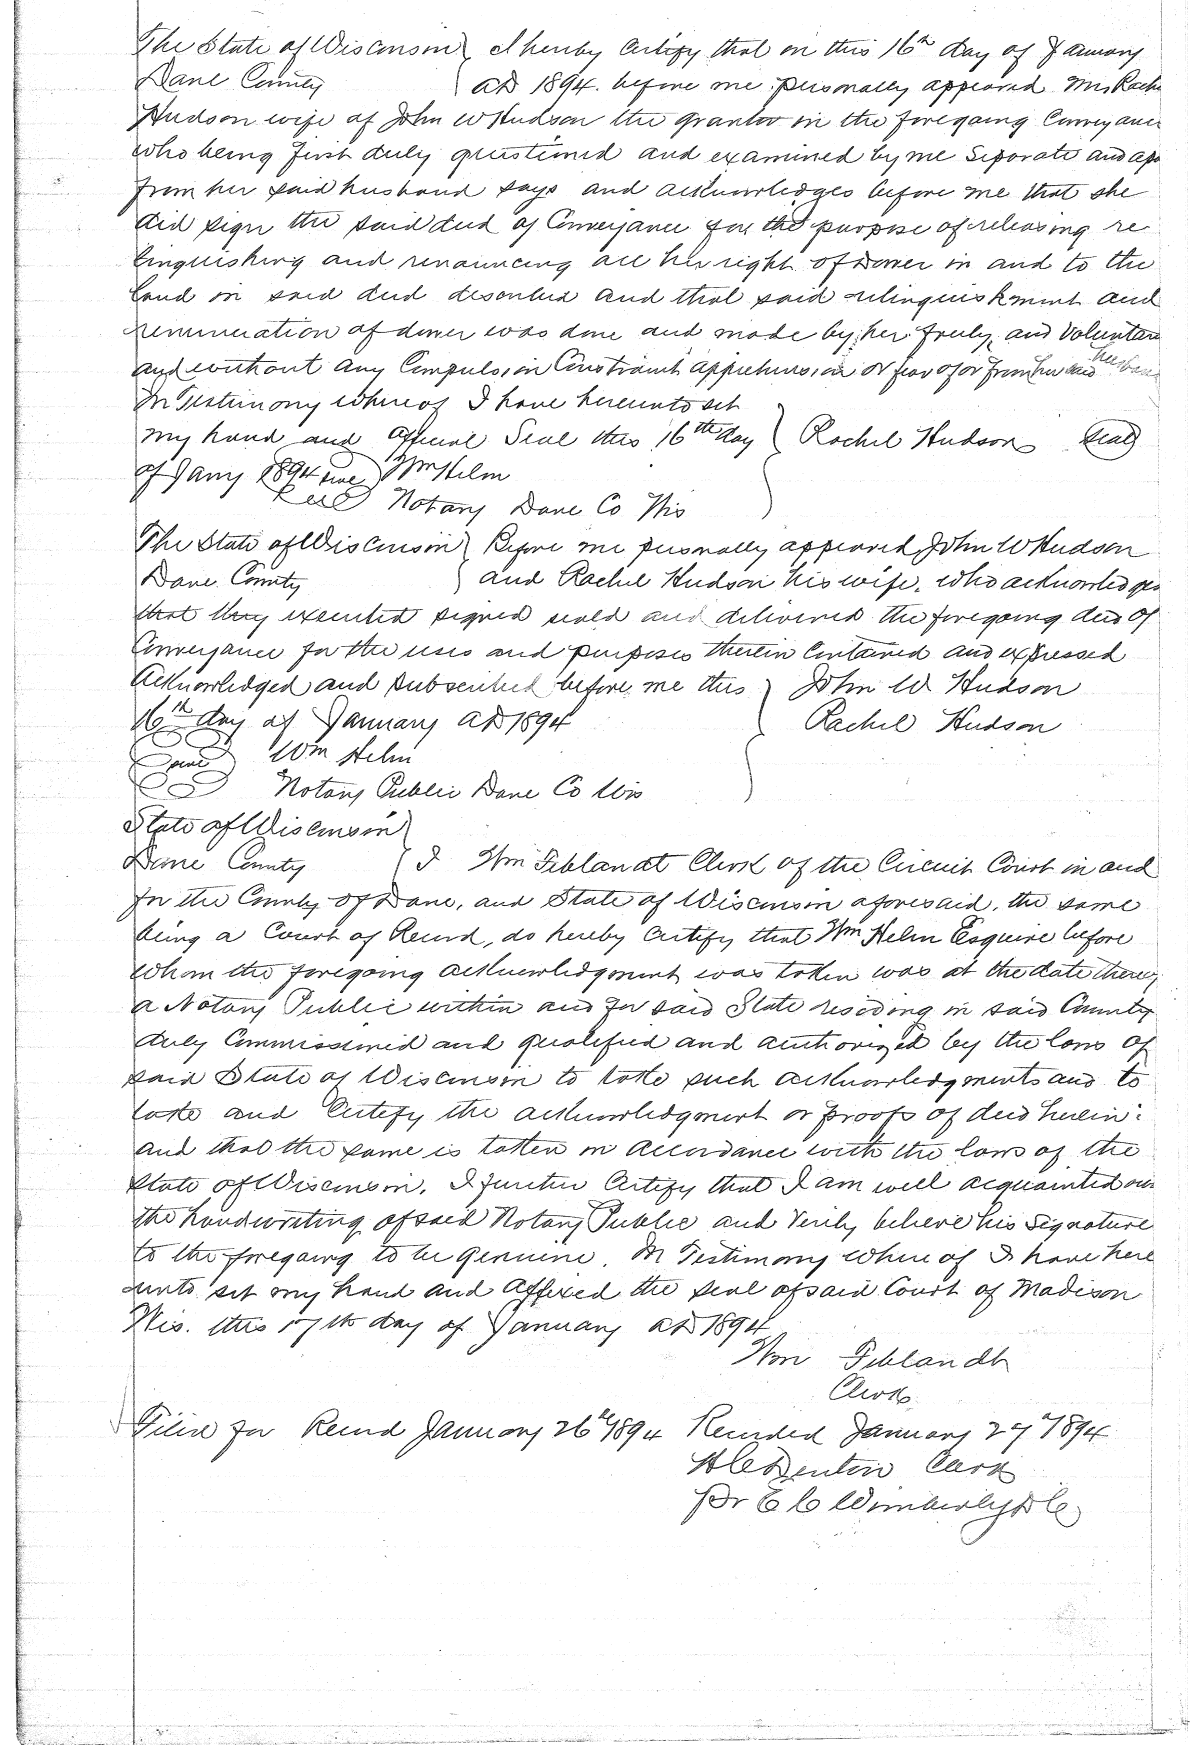 The State of Wisconsin } I hereby Certify that on this 16th day of January
Dane County } AD 1894. before me personally appeared Mrs Rache
Hudson wife of John W Hudson the grantor in the foregoing Conveyance
who being first duly questioned and examined by me Separate and apa
from her said husband says and acknowledges before me that she
did sign the said deed of Conveyance for the purpose of releasing re
linquishing and renouncing all her right of Dower in and to the
land in said deed described and that said relinquishment and
renunciation of dower was done and made by her freely, and Voluntari
and without any Compulsion Constraint apprehension or fear of or from her said husban
In Testimony whereof I have hereunto set
my hand and Official Seal this 16th day } Rachel Hudson Seal
of Jany 1894 Wm Helm
Seal Notary Dane Co Wis
The State of Wisconsin } Before me personally appeared John W Hudson
Dane County } and Rachel Hudson his wife, who acknowledges
that they executed signed seald and delivered the foregoing deed of
Conveyance for the uses and purposes therein Contained and expressed
Acknowledged and subscribed before me this } John W Hudson
16th day of January AD 1894 Rachel Hudson
Wm Helm
Notary Public Dane Co Wis
State of Wisconsin }
Dane County } I Wm Feblandt Clerk of the Circuit Court in and
for the County of Dane, and State of Wisconsin aforesaid, the same
being a Court of Record, do hereby Certify that Wm Helm Esquire before
whom the foregoing acknowledgment was taken was at the date thereof
a Notary Public within and for said State residing in said County
duly Commissioned and qualified and authorized by the laws of
said State of Wisconsin to take such acknowledgments and to
take and Certify the acknowledgment or proofs of deed herein:
and that the same is taken in Accordance with the laws of the
State of Wisconsin. I further Certify that I am well acquainted
the handwriting of said Notary Public and Verily believe his Signature
to the foregoing to be genuine. In Testimony whereof I have here
unto set my hand and Affixed the seal of said Court of Madison
Wis. this 17th day of January AD 1894
Wm Feblandt
Clerk
Filed for Record January 26th 1894 Recorded January 27th 1894
H C Denton Clerk
Pr E C Wimberly D C